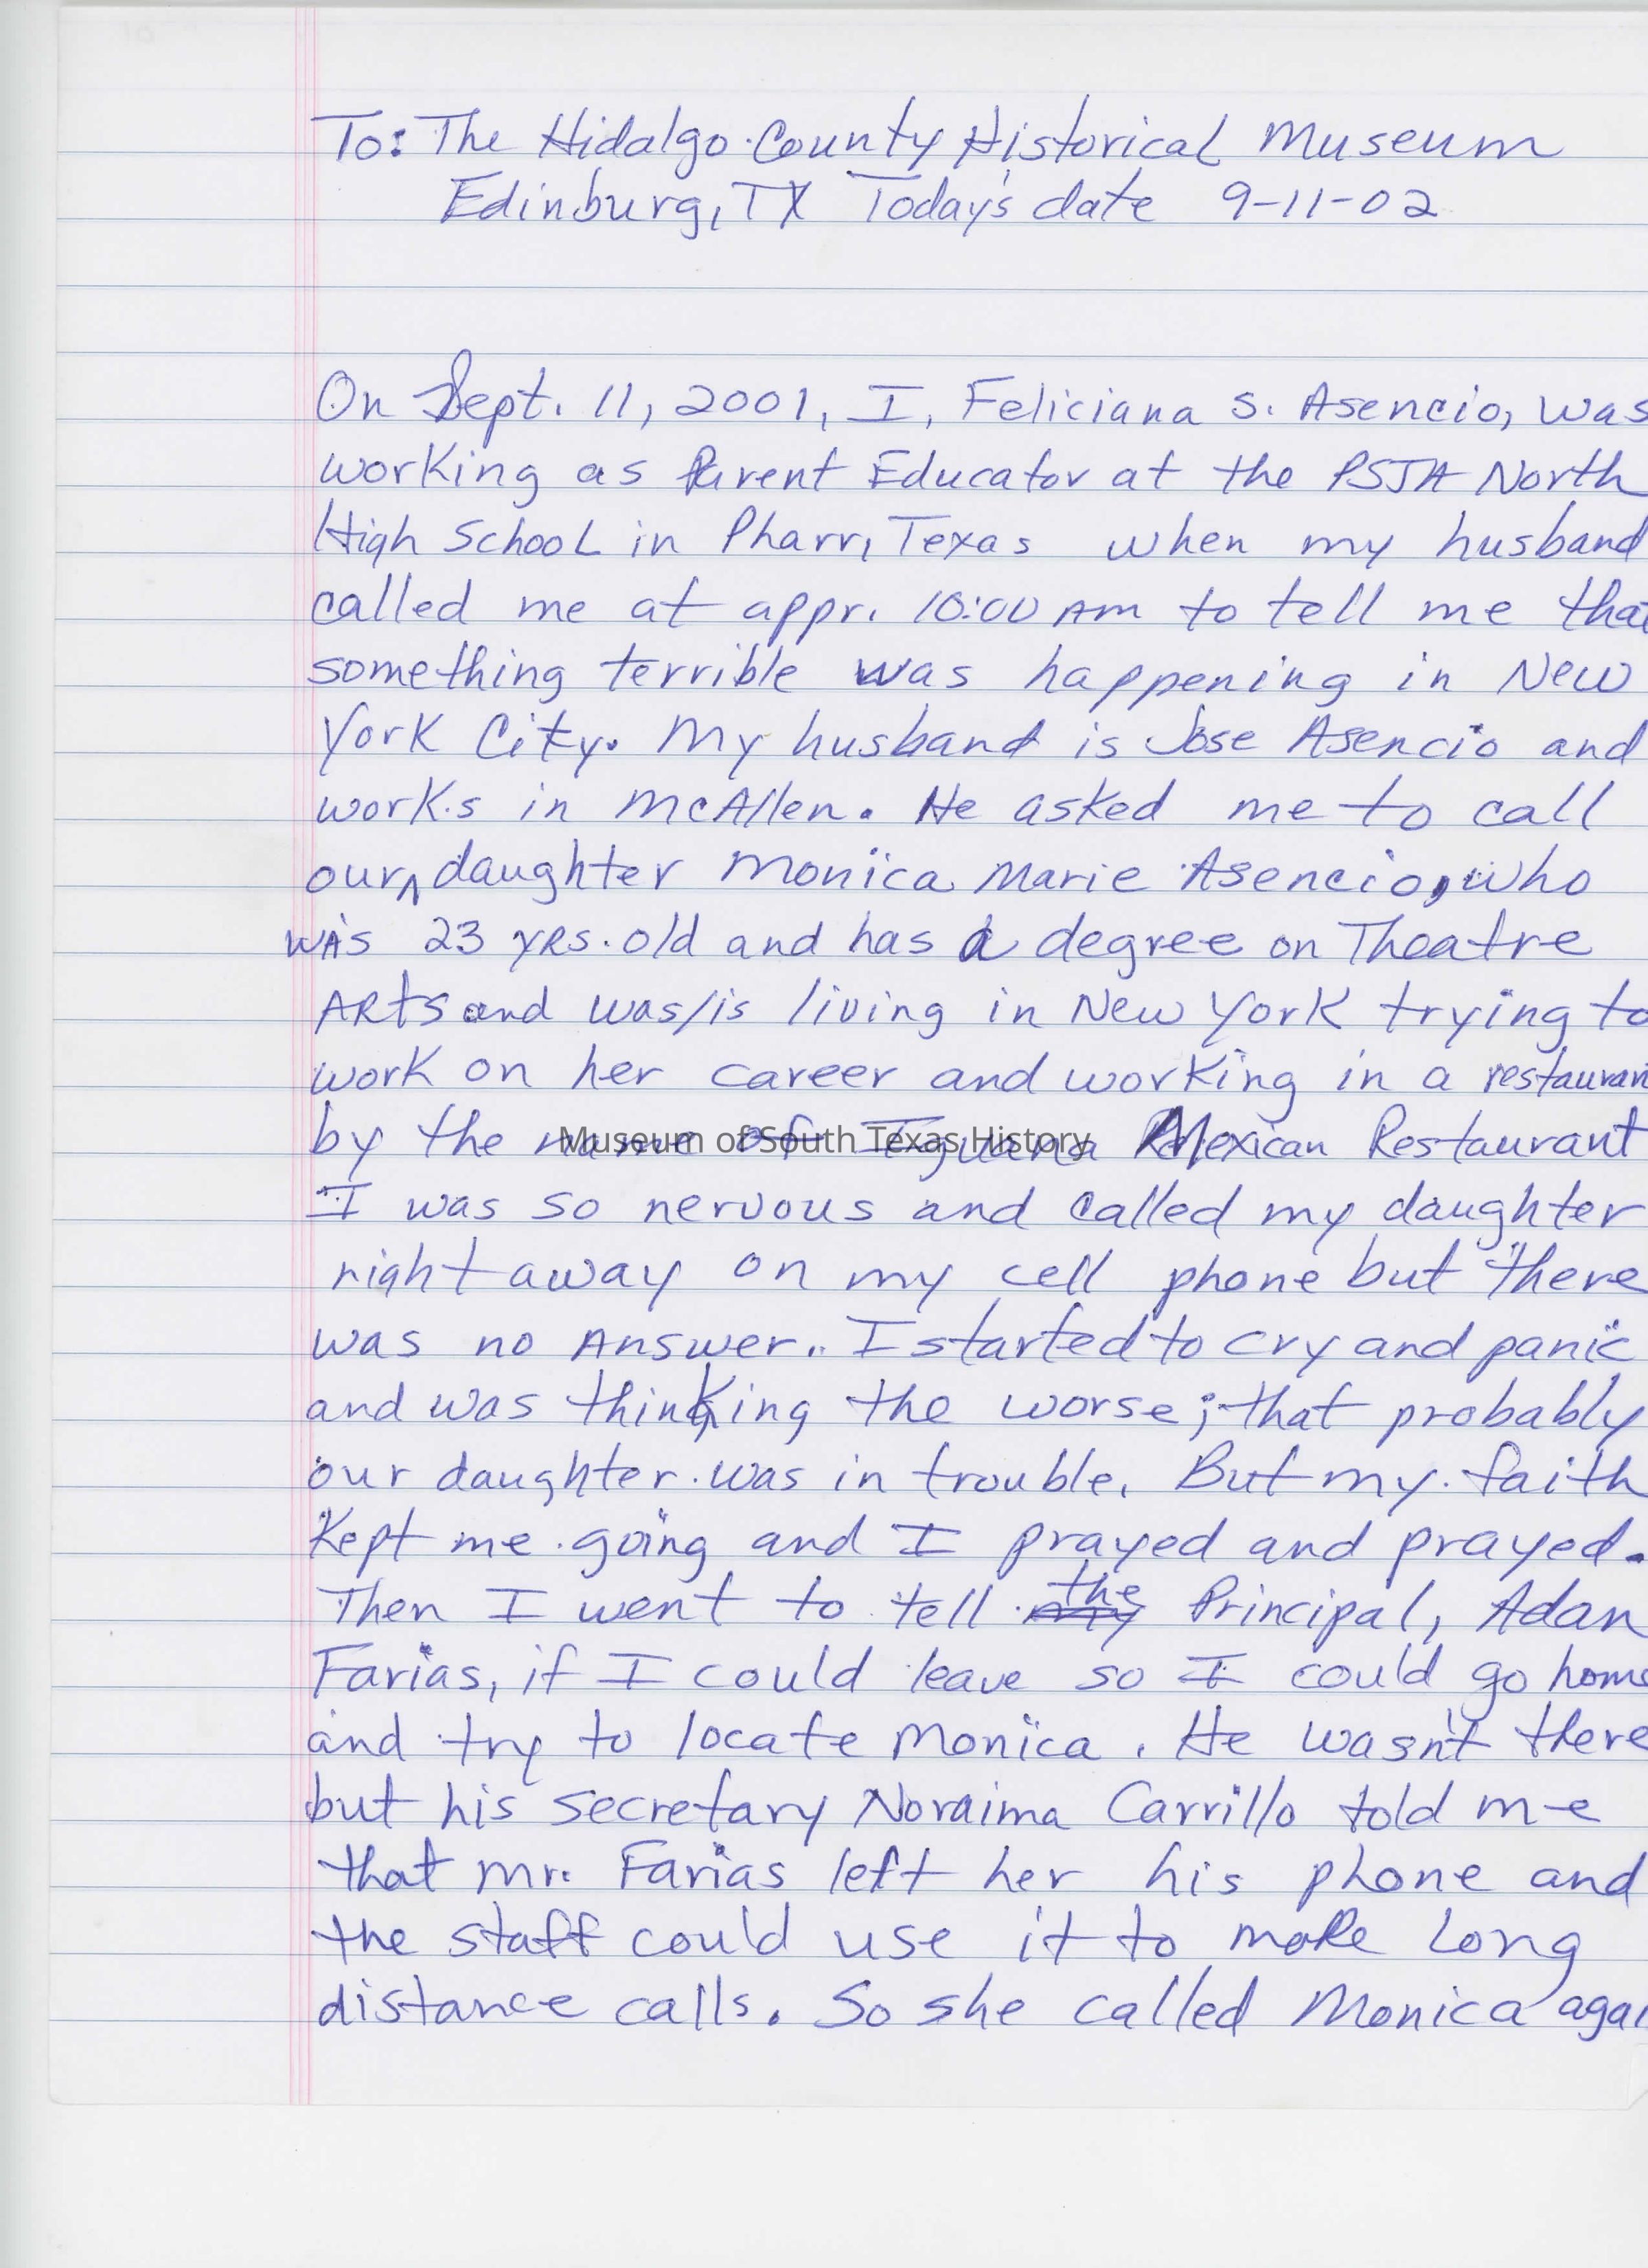 To: The Hidalgo County Historical Museum
Edinburg, TX Today's date 9-11-02
On Sept. 11, 2001, I, Feliciana S. Asencio, was
working as Parent Educator at the PSJA North
High School in Pharr, Texas when my husband
called me at appr. 10:00 AM to tell me that
something terrible was happening in New
York City. My husband is Jose Asencio and
works in McAllen. He asked me to call
our daughter Monica Marie Asencio, who
was 23 yrs. old and has a degree on Theatre
Arts and was/is living in New York trying to
work on her career and working in a restauran
by the name of Iguana Mexican Restaurant
Museum of South Texas History
I was so nervous and called my daughter
right away on my cell phone but there
was no answer. I started to cry and panic
and was thinking the worse; that probably
our daughter was in trouble. But my faith
Kept me going and I prayed and prayed.
Then I went to tell the Principal, Adan
Farias, if I could leave so I could go home
and try to locate Monica. He wasn't there
but his secretary Noraima Carrillo told me
that Mr. Farias left her his phone and
the staff could use it to make long
distance calls. So she called Monica agai